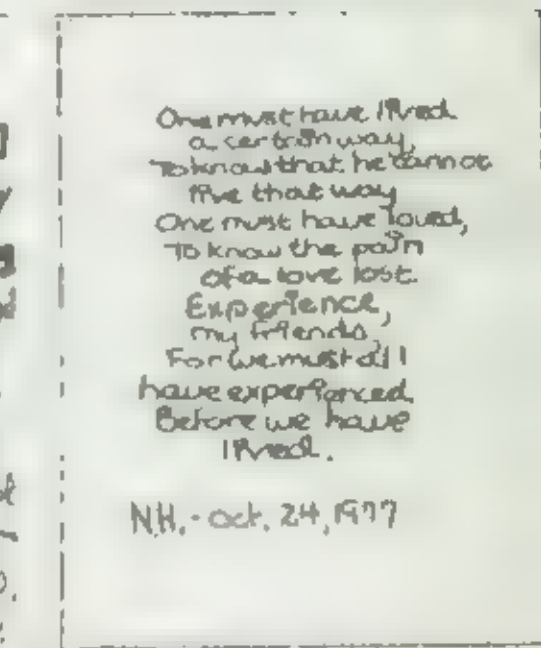 One must have lived
a certain way,
To know that he cannot
live that way
One must have loved,
To know the pain
of a love lost.
Experience,
my friends,
For we must all
have experienced
Before we have
lived.
N.H. - oct. 24, 1977